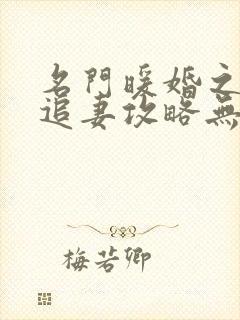 名門暖婚之
追妻攻略無
梅若卿